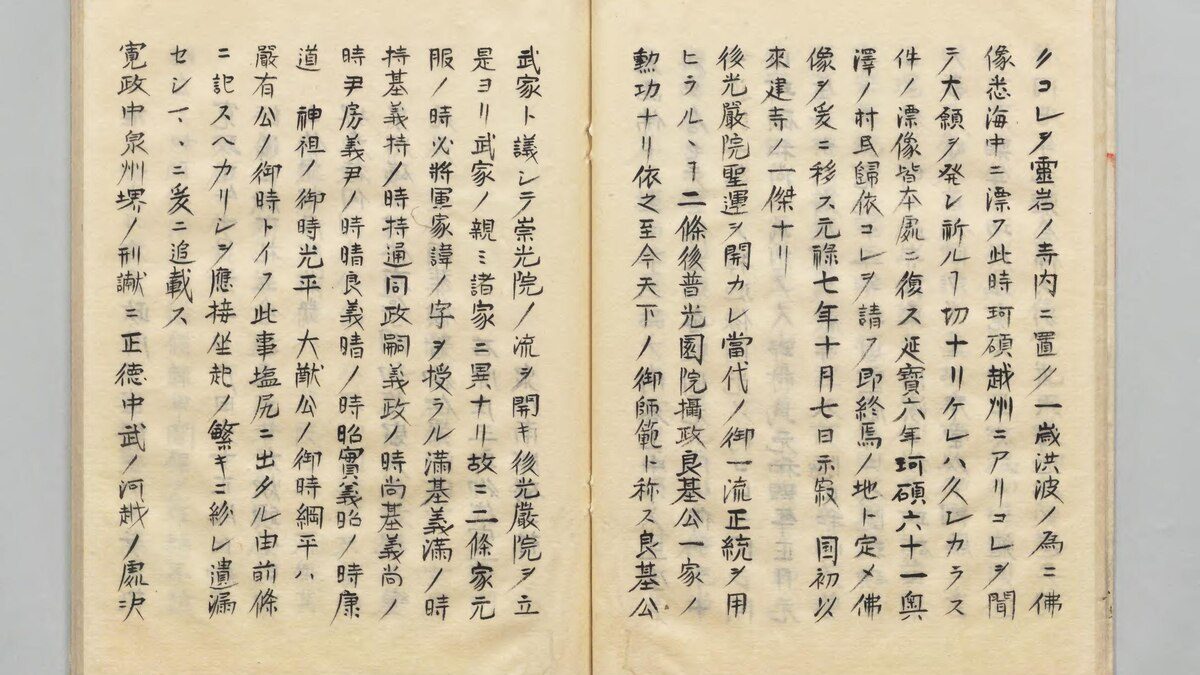 ノコレヲ靈岩ノ寺内ニ置ク一歳洪波ノ為ニ佛
像悉海中ニ漂フ此時珂碩越州ニアリコレヲ聞
テ大願ヲ発シ祈ルヿ切ナリケレハ久シカラス
件ノ漂像皆本處ニ復ス延寶六年珂碩六十一奥
澤ノ村民歸依コレヲ請フ即終焉ノ地ト定メ佛
像ヲ爰ニ移ス元祿七年十月七日示寂　国初以
來建寺ノ一傑ナリ
後光嚴院聖運ヲ開カレ當代ノ御一流正統ヲ用
ヒラルヽヿ二條後普光園院攝政良基公一家ノ
勲功ナリ依之至今天下ノ御師範ト称ス良基公
武家ト議シテ崇光院ノ流ヲ開キ後光嚴院ヲ立
是ヨリ武家ノ親ミ諸家ニ異ナリ故ニ二條家元
服ノ時必將軍家諱ノ字ヲ授ラル滿基義滿ノ時
持基義持ノ時持通同政嗣義政ノ時尚基義尚ノ
時尹房義尹ノ時晴良義晴ノ時昭實義昭ノ時康
道　神祖ノ御時光平　大猷公ノ御時綱平ハ
嚴有公ノ御時トイフ此事塩尻ニ出タル由前條
ニ記スヘカリシヲ應接坐起ノ繁キニ紛レ遺漏
セシヿヽニ爰ニ追載ス
寛政中泉州堺ノ刑讞ニ正徳中武ノ河越ノ處決